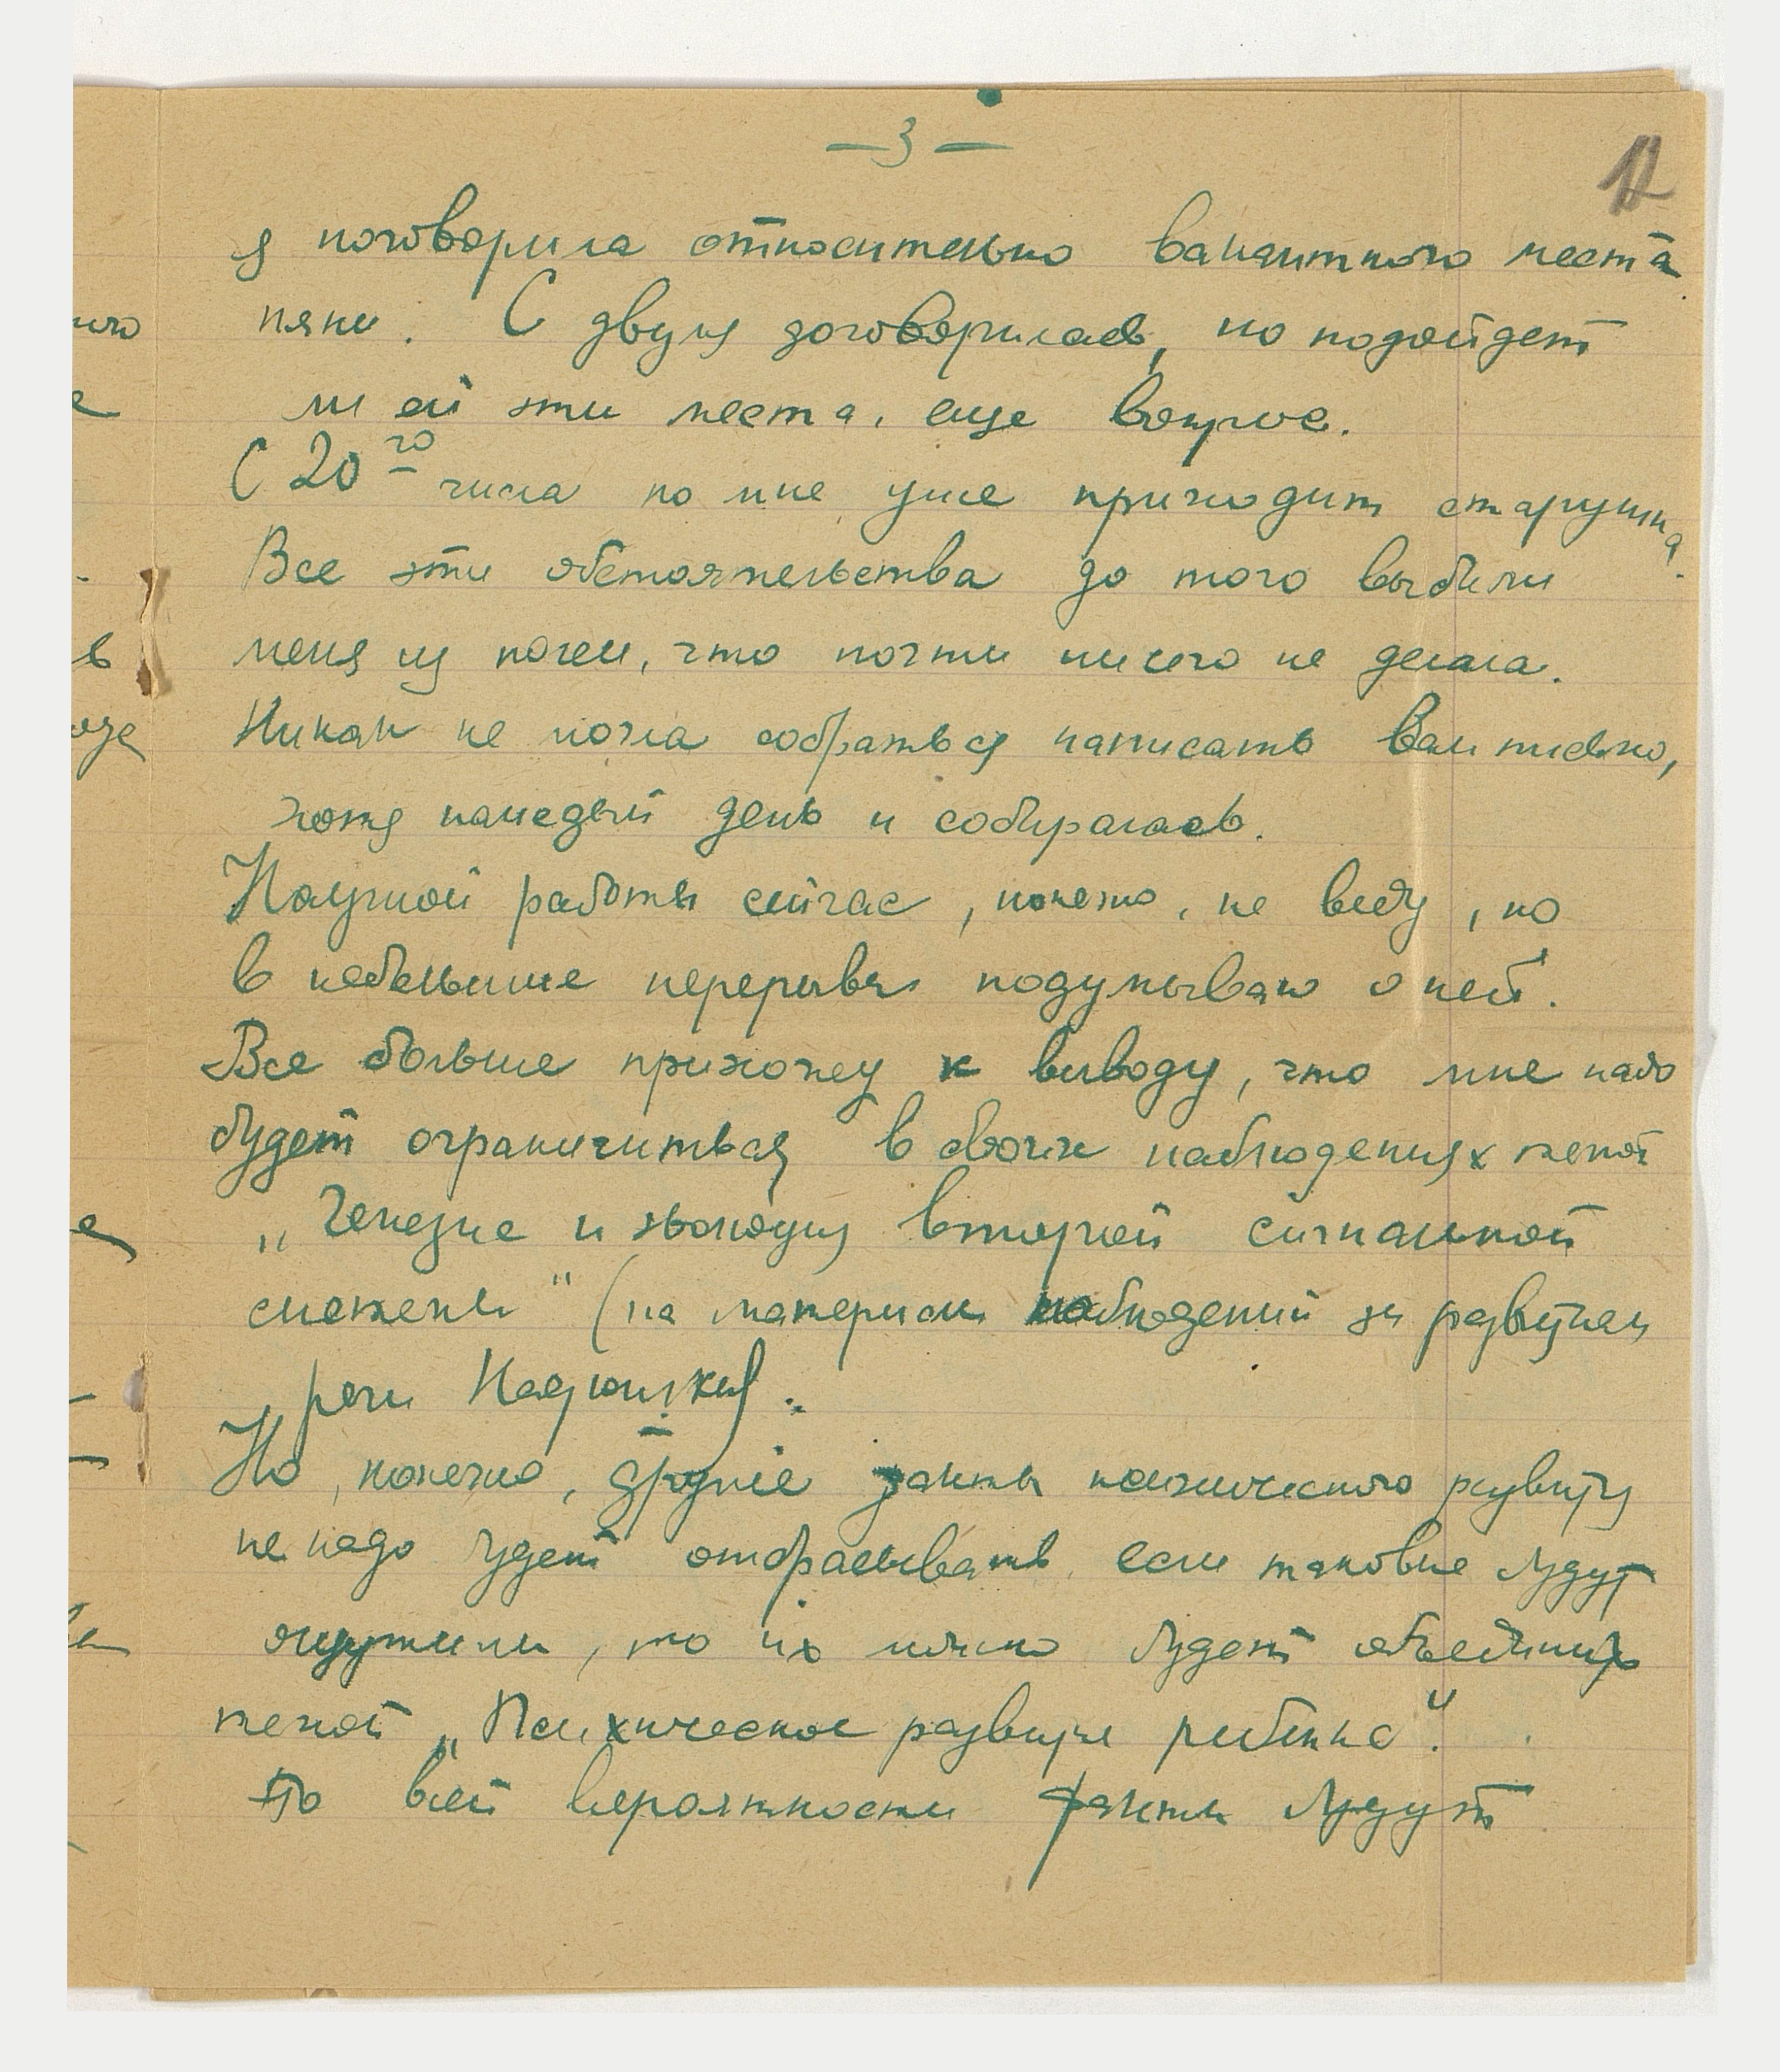 — 3 —
12
я поговорила относительно вакантного места
няни. С двумя договорилась, но подойдет
ли ей эти места, еще вопрос.
С 20го числа ко мне уже приходит старушка.
Все эти обстоятельства до того выбили
меня из колеи, что почти ничего не делала.
Никак не могла собраться написать Вам письмо,
хотя каждый день и собиралась.
Научной работы сейчас, конечно, не веду, но
в небольшие перерывы подумываю о ней.
Все больше прихожу к выводу, что мне надо
будет ограничиться в своих наблюдениях темой
„Генезис и эволюция второй сигнальной
системы" (на материале наблюдений за развитием
речи Надюшки).
Но, конечно, другие факты психического развития
не надо будет отбрасывать, если таковые будут
то их можно будет объединить
темой „Психическое развитие ребенка".
По всей вероятности факты будут
ого
е
в
оде
е